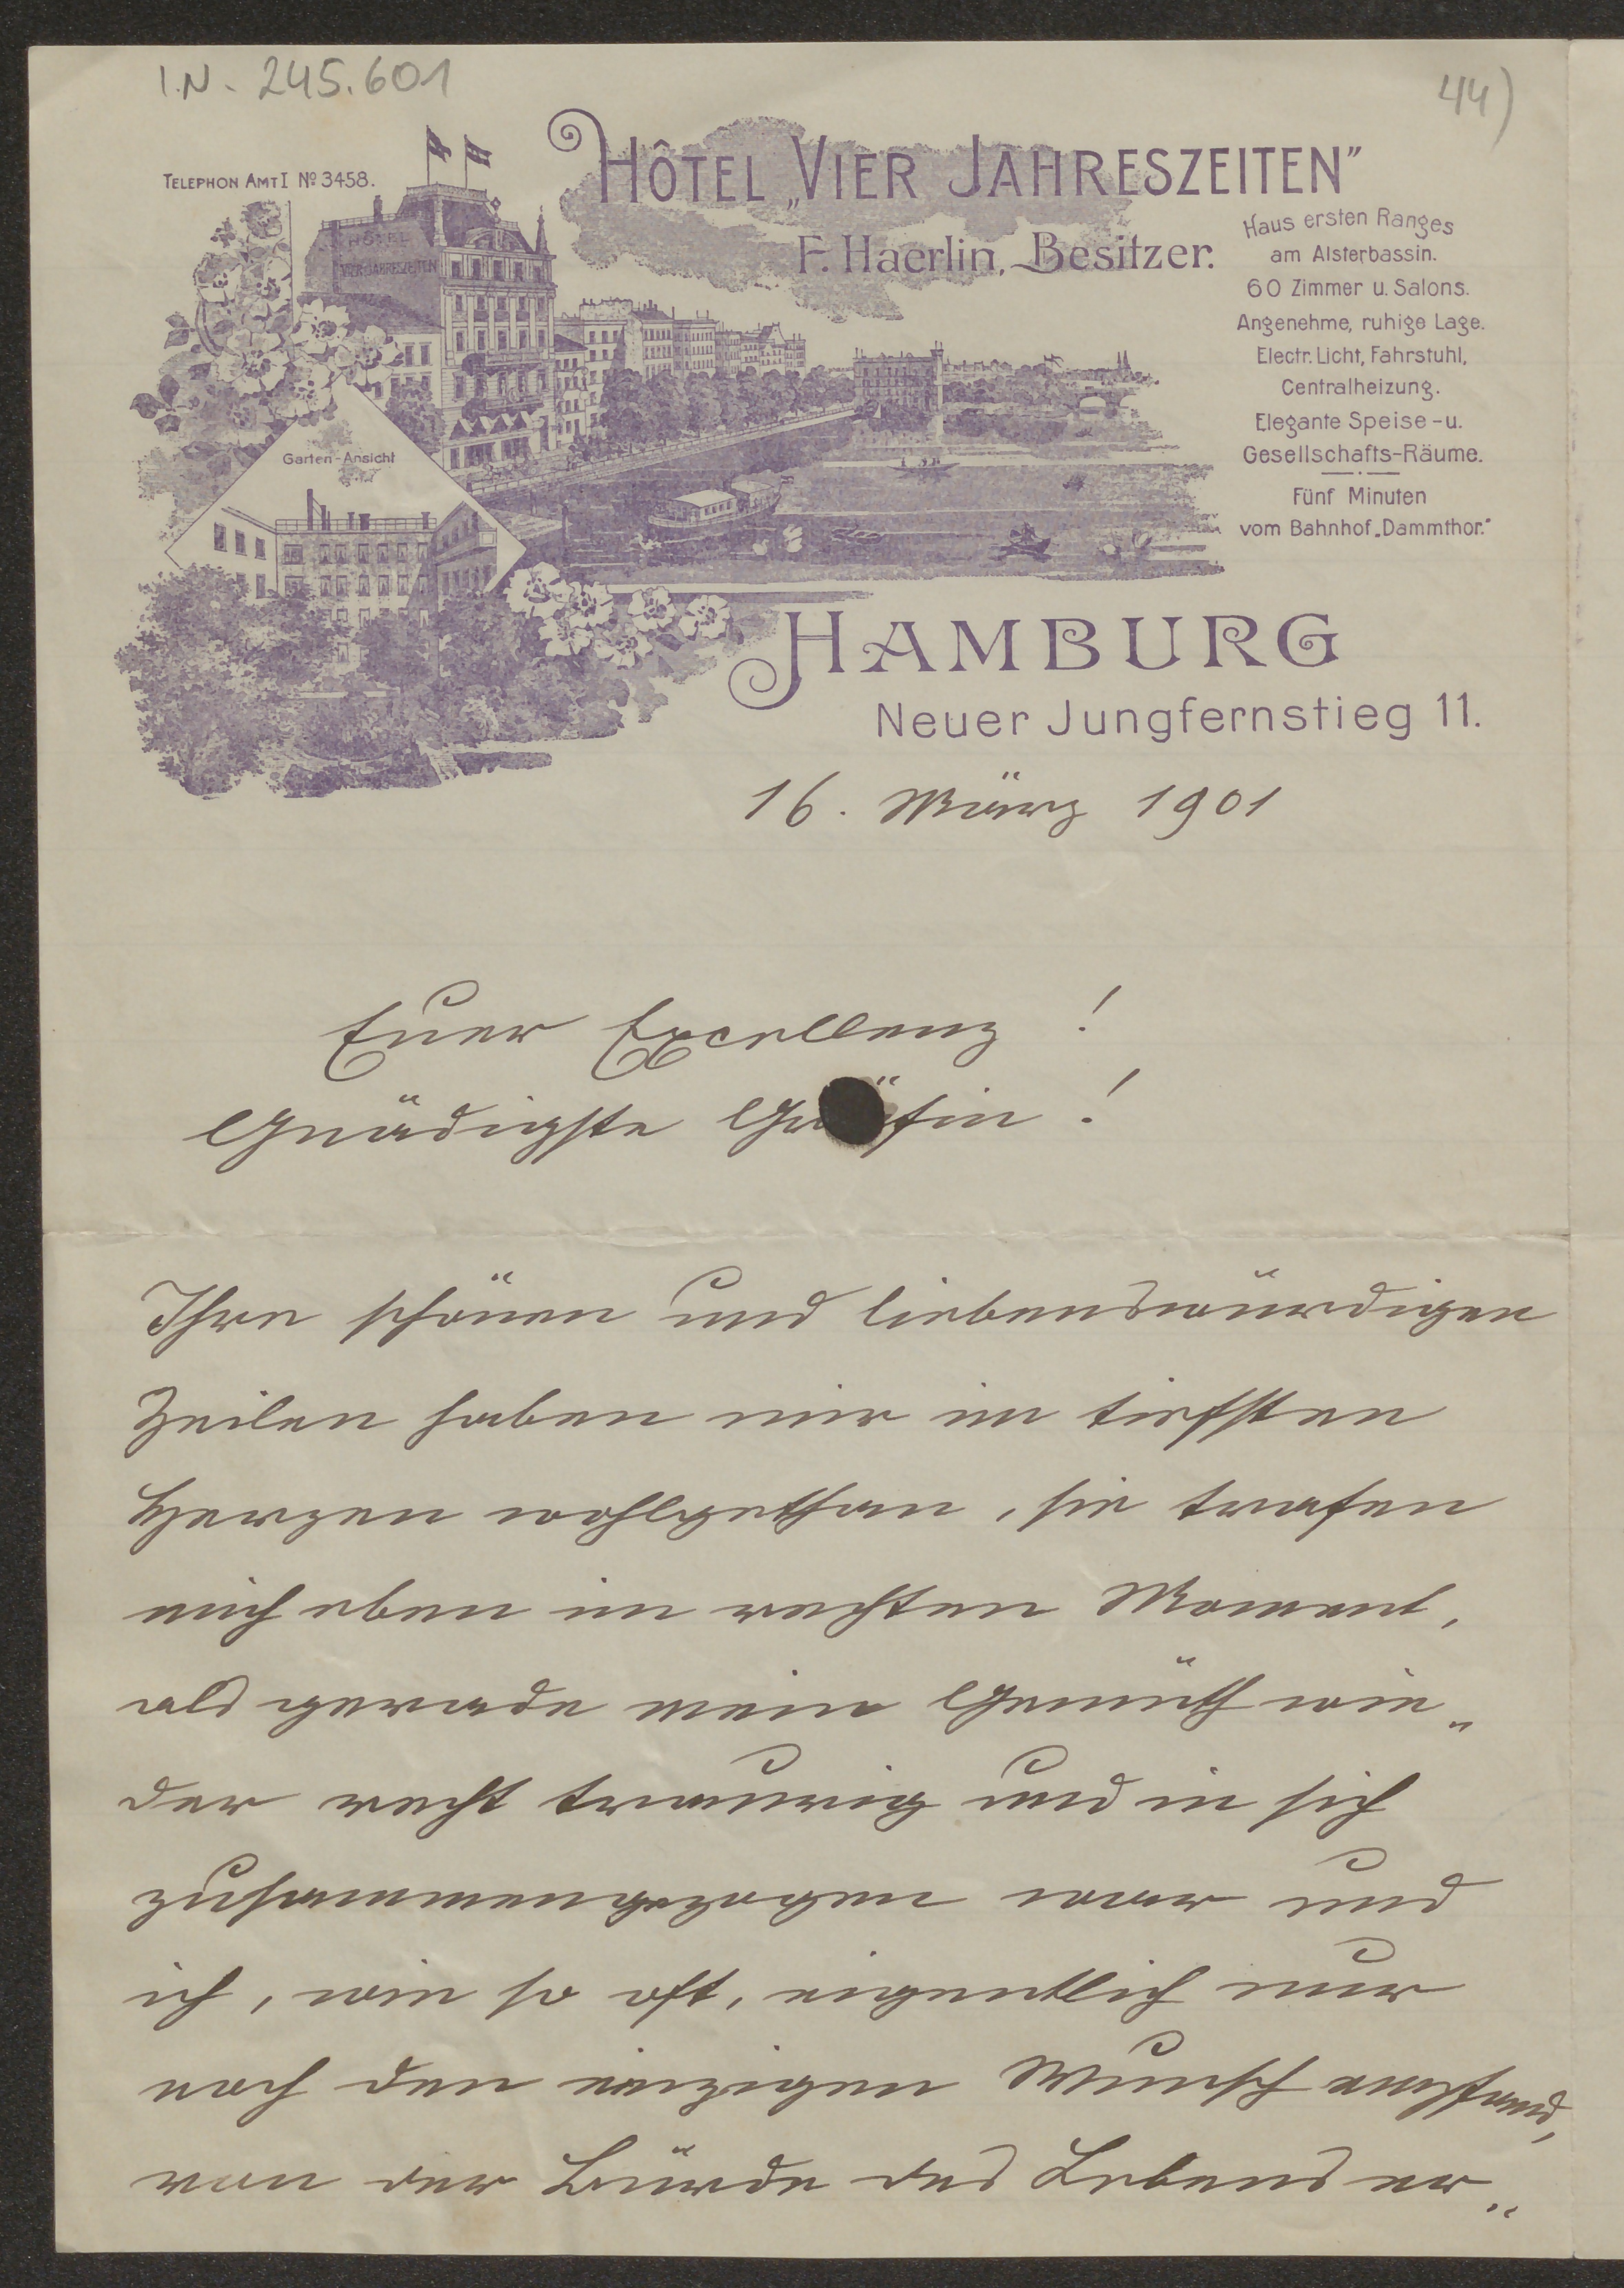 I.N. 245.601
44)
TELEPHON AMT I Nº 3458.
HÔTEL „VIER JAHRESZEITEN"
F. Haerlin, Besitzer.
HÔTEL
VIER JAHRESZEITEN
Haus ersten Ranges
am Alsterbassin.
60 Zimmer u. Salons.
Angenehme, ruhige Lage.
Electr. Licht, Fahrstuhl,
Centralheizung.
Elegante Speise-u.
Gesellschafts-Räume.
Fünf Minuten
vom Bahnhof „Dammthor."
Garten-Ansicht
HAMBURG
Neuer Jungfernstieg 11.
16. März 1901
Euer Excellenz!
Gnädigste Gräfin!
Ihre schönen und liebenswürdigen
Zeilen haben mir im tiefsten
Herzen wohlgethan, sie trafen
mich eben im rechten Moment,
als gerade mein Gemüth wie„
der recht traurig und in sich
zusammengezogen war und
ich, wie so oft, eigentlich nur
noch den einzigen Wunsch empfand,
von der Bürde des Lebens er„